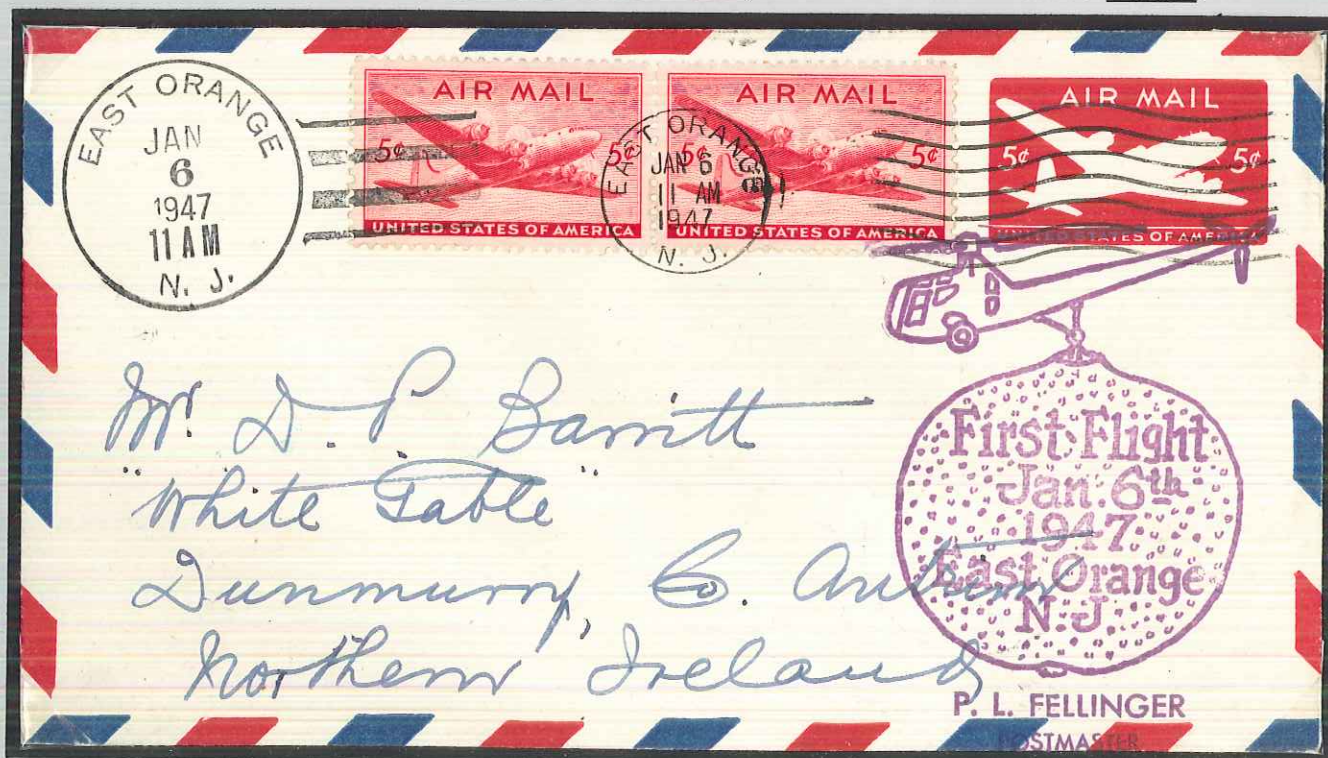 EAST ORANGE
JAN
6
1947
11 AM
N. J.
AIR MAIL
5¢ 5¢
UNITED STATES OF AMERICA
EAST ORANGE
JAN 6
11 AM
1947
N. J.
AIR MAIL
5¢ 5¢
UNITED STATES OF AMERICA
AIR MAIL
5¢ 5¢
UNITED STATES OF AMERICA
Mr. D. P. Barritt
"White Gable"
Dunmurry, Co. Antrim
Northern Ireland
First Flight
Jan. 6th
1947
East Orange
N.J
P. L. FELLINGER
POSTMASTER